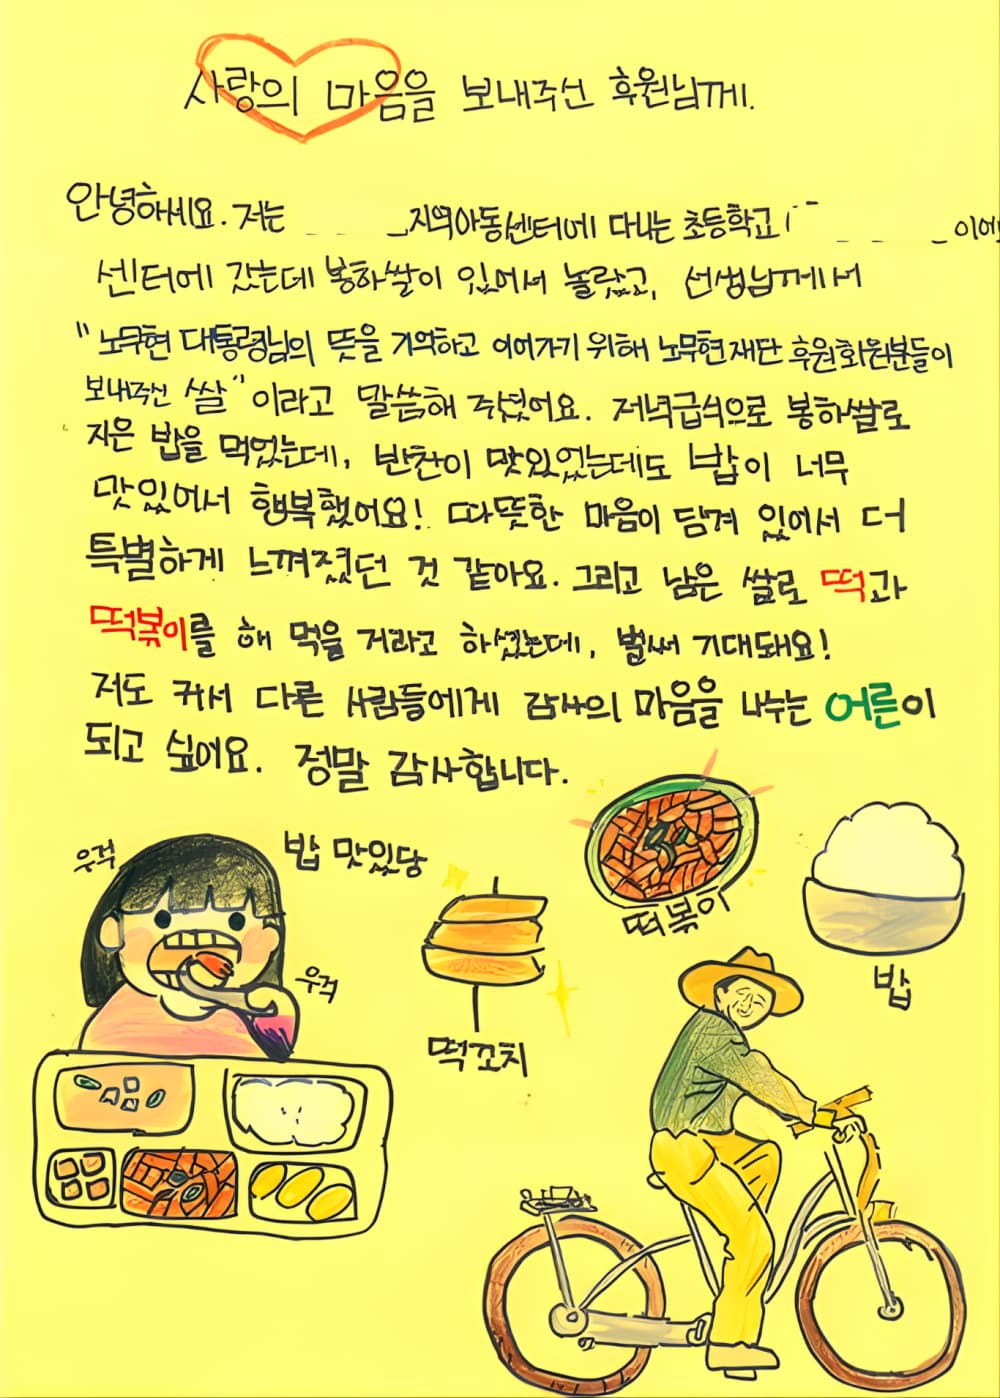 사랑의 마음을 보내주신 후원님께.
안녕하세요. 저는 지역아동센터에 다니는 초등학교
센터에 갔는데 봉하쌀이 있어서 놀랐고, 선생님께서
"노무현 대통령님의 뜻을 기억하고 이어가기 위해 노무현재단 후원회원분들이
보내주신 쌀"이라고 말씀해 주셨어요. 저녁급식으로 봉하쌀로
지은 밥을 먹었는데, 반찬이 맛있었는데도 밥이 너무
맛있어서 행복했어요! 따뜻한 마음이 담겨 있어서 더
특별하게 느껴졌던 것 같아요. 그리고 남은 쌀로 떡과
떡볶이를 해 먹을 거라고 하셨는데, 벌써 기대돼요!
저도 커서 다른 사람들에게 감사의 마음을 나누는 어른이
되고 싶어요. 정말 감사합니다.
우걱
밥 맛있당
우걱
떡꼬치
떡볶이
밥